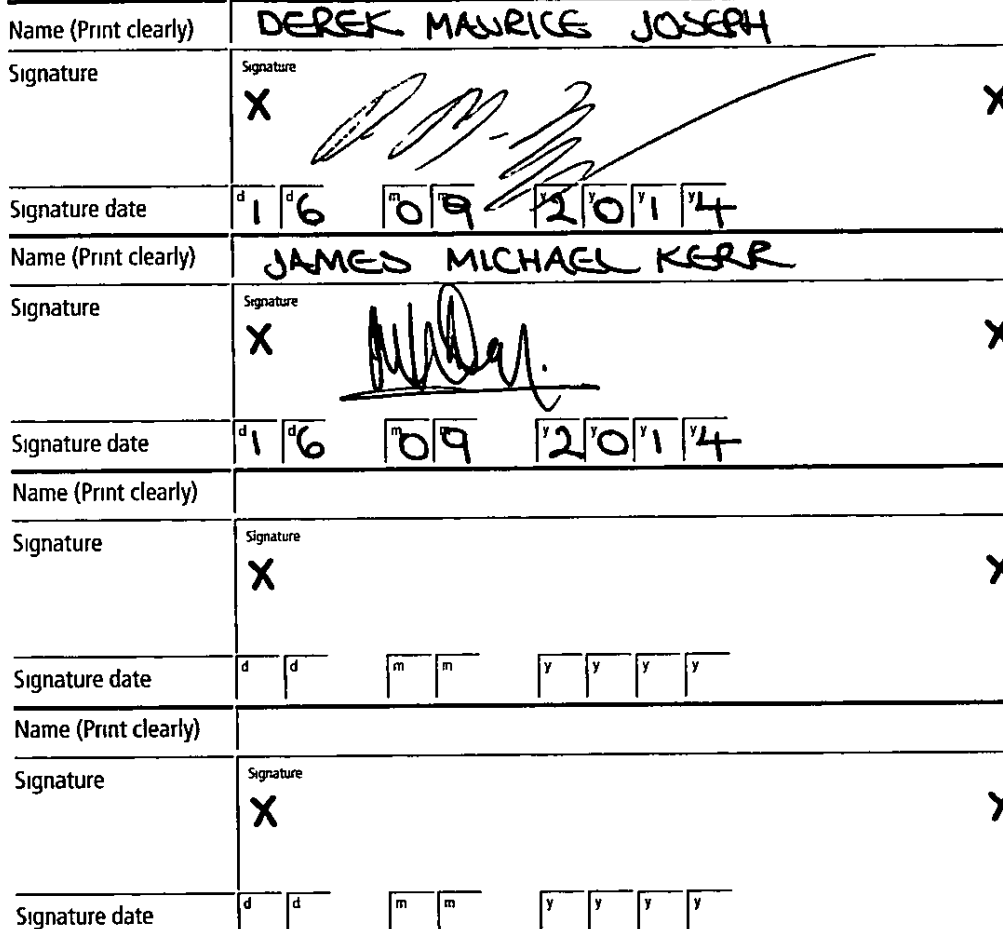 Name (Print clearly) DEREK MAURICE JOSEPH
Signature Signature
X X
Signature date d1 d6 m0 m9 y2 y0 y1 y4
Name (Print clearly) JAMES MICHAEL KERR
Signature Signature
X X
Signature date d1 d6 m0 m9 y2 y0 y1 y4
Name (Print clearly)
Signature Signature
X X
Signature date d d m m y y y y
Name (Print clearly)
Signature Signature
X X
Signature date d d m m y y y y